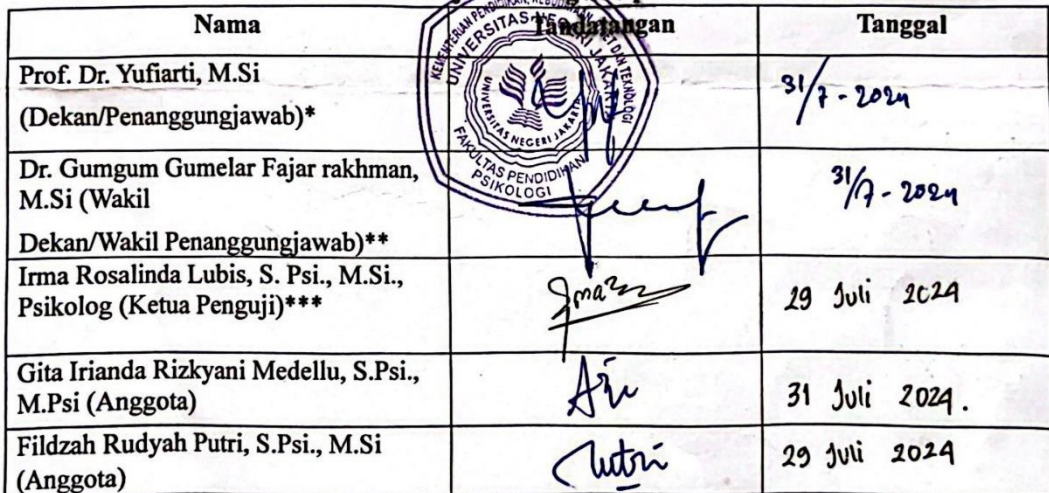 Nama Tandatangan Tanggal
Prof. Dr. Yufiarti, M.Si
(Dekan/Penanggungjawab)*
31/7 - 2024
Dr. Gumgum Gumelar Fajar rakhman,
M.Si (Wakil
Dekan/Wakil Penanggungjawab)**
31/7 - 2024
Irma Rosalinda Lubis, S. Psi., M.Si.,
Psikolog (Ketua Penguji)***
29 Juli 2024
Gita Irianda Rizkyani Medellu, S.Psi.,
M.Psi (Anggota)
31 Juli 2024.
Fildzah Rudyah Putri, S.Psi., M.Si
(Anggota)
Putri
29 Juli 2024
UNIVERSITAS NEGERI JAKARTA
FAKULTAS PENDIDIKAN
PSIKOLOGI